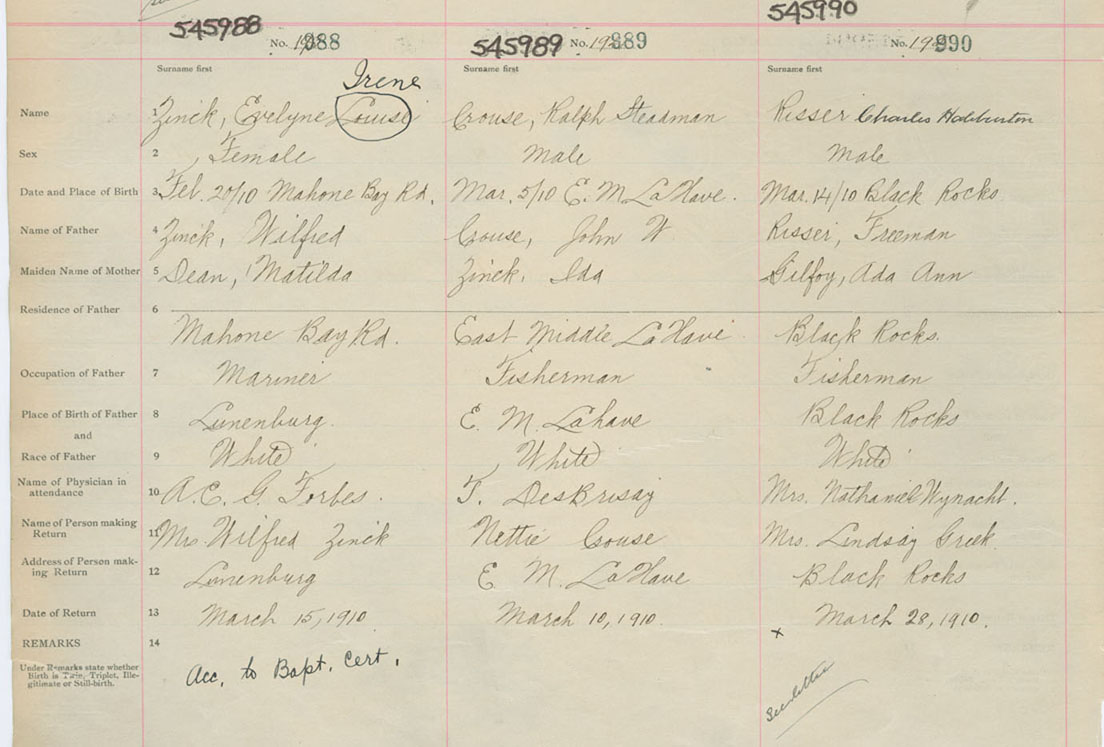 545988 No. 1988 545989 No. 19 989 545990 No. 19 990
Surname first Surname first Surname first
Irene
Name 1 Zinck, Evelyne Louise Crouse, Ralph Steadman Risser Charles Haliburton
Sex 2 Female Male Male
Date and Place of Birth 3 Feb. 20/10 Mahone Bay Rd. Mar. 5/10 E. M. LaHave. Mar. 14/10 Black Rocks
Name of Father 4 Zinck, Wilfred Crouse, John W. Risser, Freeman
Maiden Name of Mother 5 Dean, Matilda Zinck, Ida Gilfoy, Ada Ann
Residence of Father 6
Mahone Bay Rd. East Middle LaHave Black Rocks.
Occupation of Father 7 Mariner Fisherman Fisherman
Place of Birth of Father 8 Lunenburg. E. M. Lahave Black Rocks
and
Race of Father 9 White White White
Name of Physician in attendance 10 A. C. G. Forbes. T. DesBrisay Mrs. Nathaniel Wynacht.
Name of Person making Return 11 Mrs. Wilfred Zinck Nettie Crouse Mrs. Lindsay Greek.
Address of Person making Return 12 Lunenburg E. M. LaHave Black Rocks
Date of Return 13 March 15, 1910 March 10, 1910. March 28, 1910.
REMARKS 14 x
Under Remarks state whether
Birth is Twin, Triplet, Ille-
gitimate or Still-birth.
Acc. to Bapt. Cert.
See letter